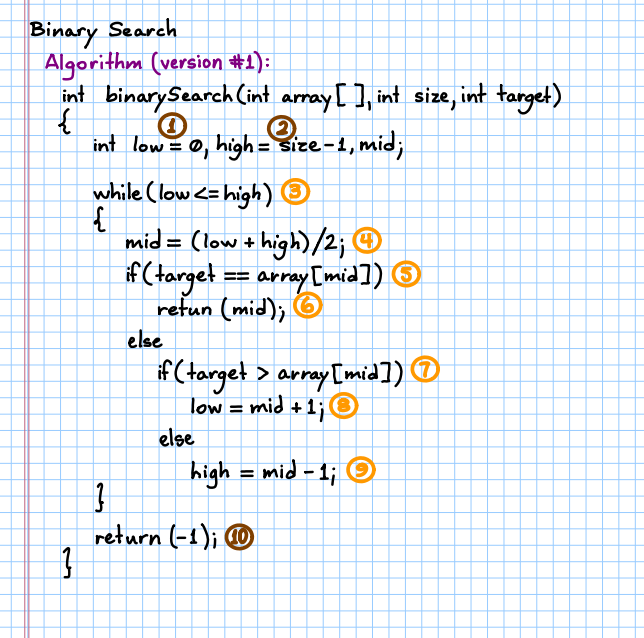 Binary Search
Algorithm (version #1):
int binarySearch(int array[ ], int size, int target)
{
① ②
int low = 0, high = size - 1, mid;
while (low <= high) ③
{
mid = (low + high)/2; ④
if (target == array[mid]) ⑤
retun (mid); ⑥
else
if (target > array[mid]) ⑦
low = mid + 1; ⑧
else
high = mid - 1; ⑨
}
return (-1); ⑩
}